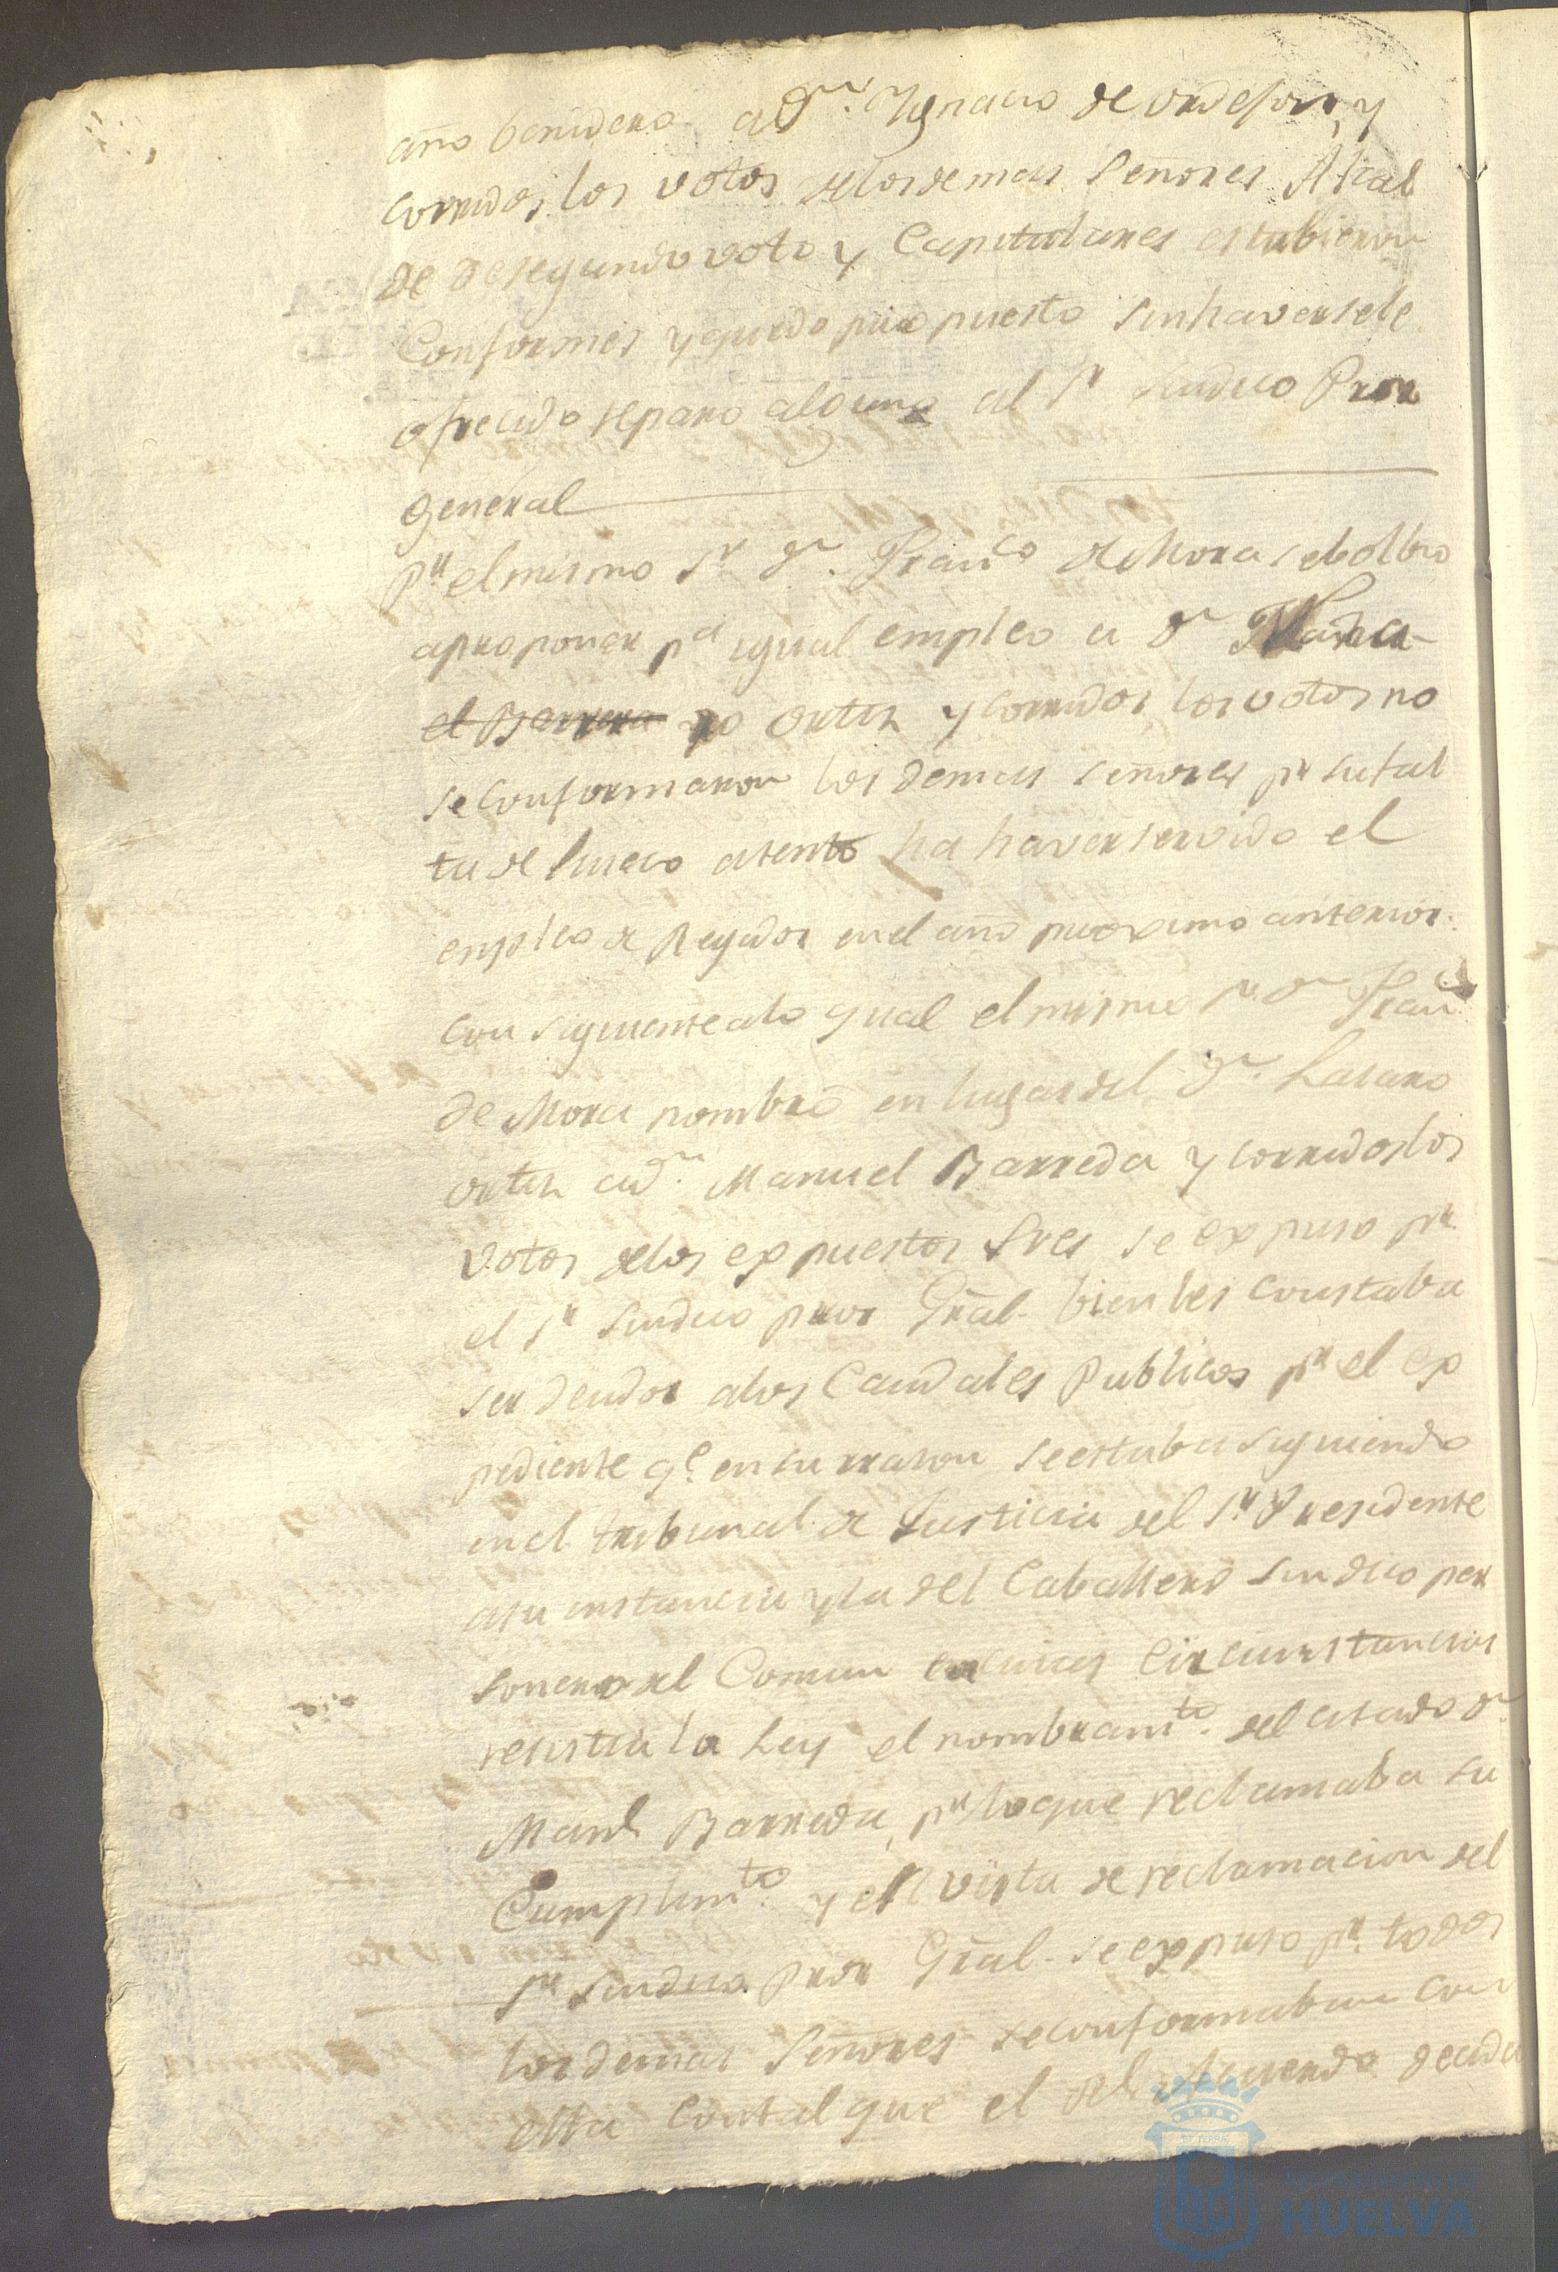 año benidero a Dn. Ygnacio de Ordejon, y
corridos, los votos delosdemas Señores Alcal
de desegundo voto y Capitulares estubieron
Conformes y quedo propuesto sinhaversele
ofrecido reparo alguno al Sr Sindico Pror
General
Pr elmismo Sr Dn. Franco de Mora sebolbio
aproponer pa igual empleo a Dn
el Barrera ro Ortiz y corridos los votos no
seconformaron los demas señores pr sufal
ta de hueco atento ha haverservido el
empleo de Regidor enel año proximo anterior.
Con siguientealo qual elmismo Sr Dn Franco
de Mora nombro en lugardel Dn. Lazaro
Ortiz adn. Manuel Barreda y corridos los
votos delos expuestos Sres se expuso pr
el Sr Sindico pror Gral. bien les constaba
ser deudor alos Caudales Publicos pr el ex
pediente qe. ensu rrazon seestaba siguiendo
enel tribunal de Justicia del Sr Presidente
asu instancia yla del Caballero Sindico per
sonero del Comun encuias Circunstancias
resistia la Ley el nombramto. del citado Dn.
Manl. Barreda, pr loque reclamaba su
Cumplimto. y en vista de reclamacion del
Sr Sindico Pror Gral. se expuso pr. todos
los demas Señores seconformaban con
ella contal que el Rl. Acuerdo decida
AYUNTAMIENTO DE
HUELVA